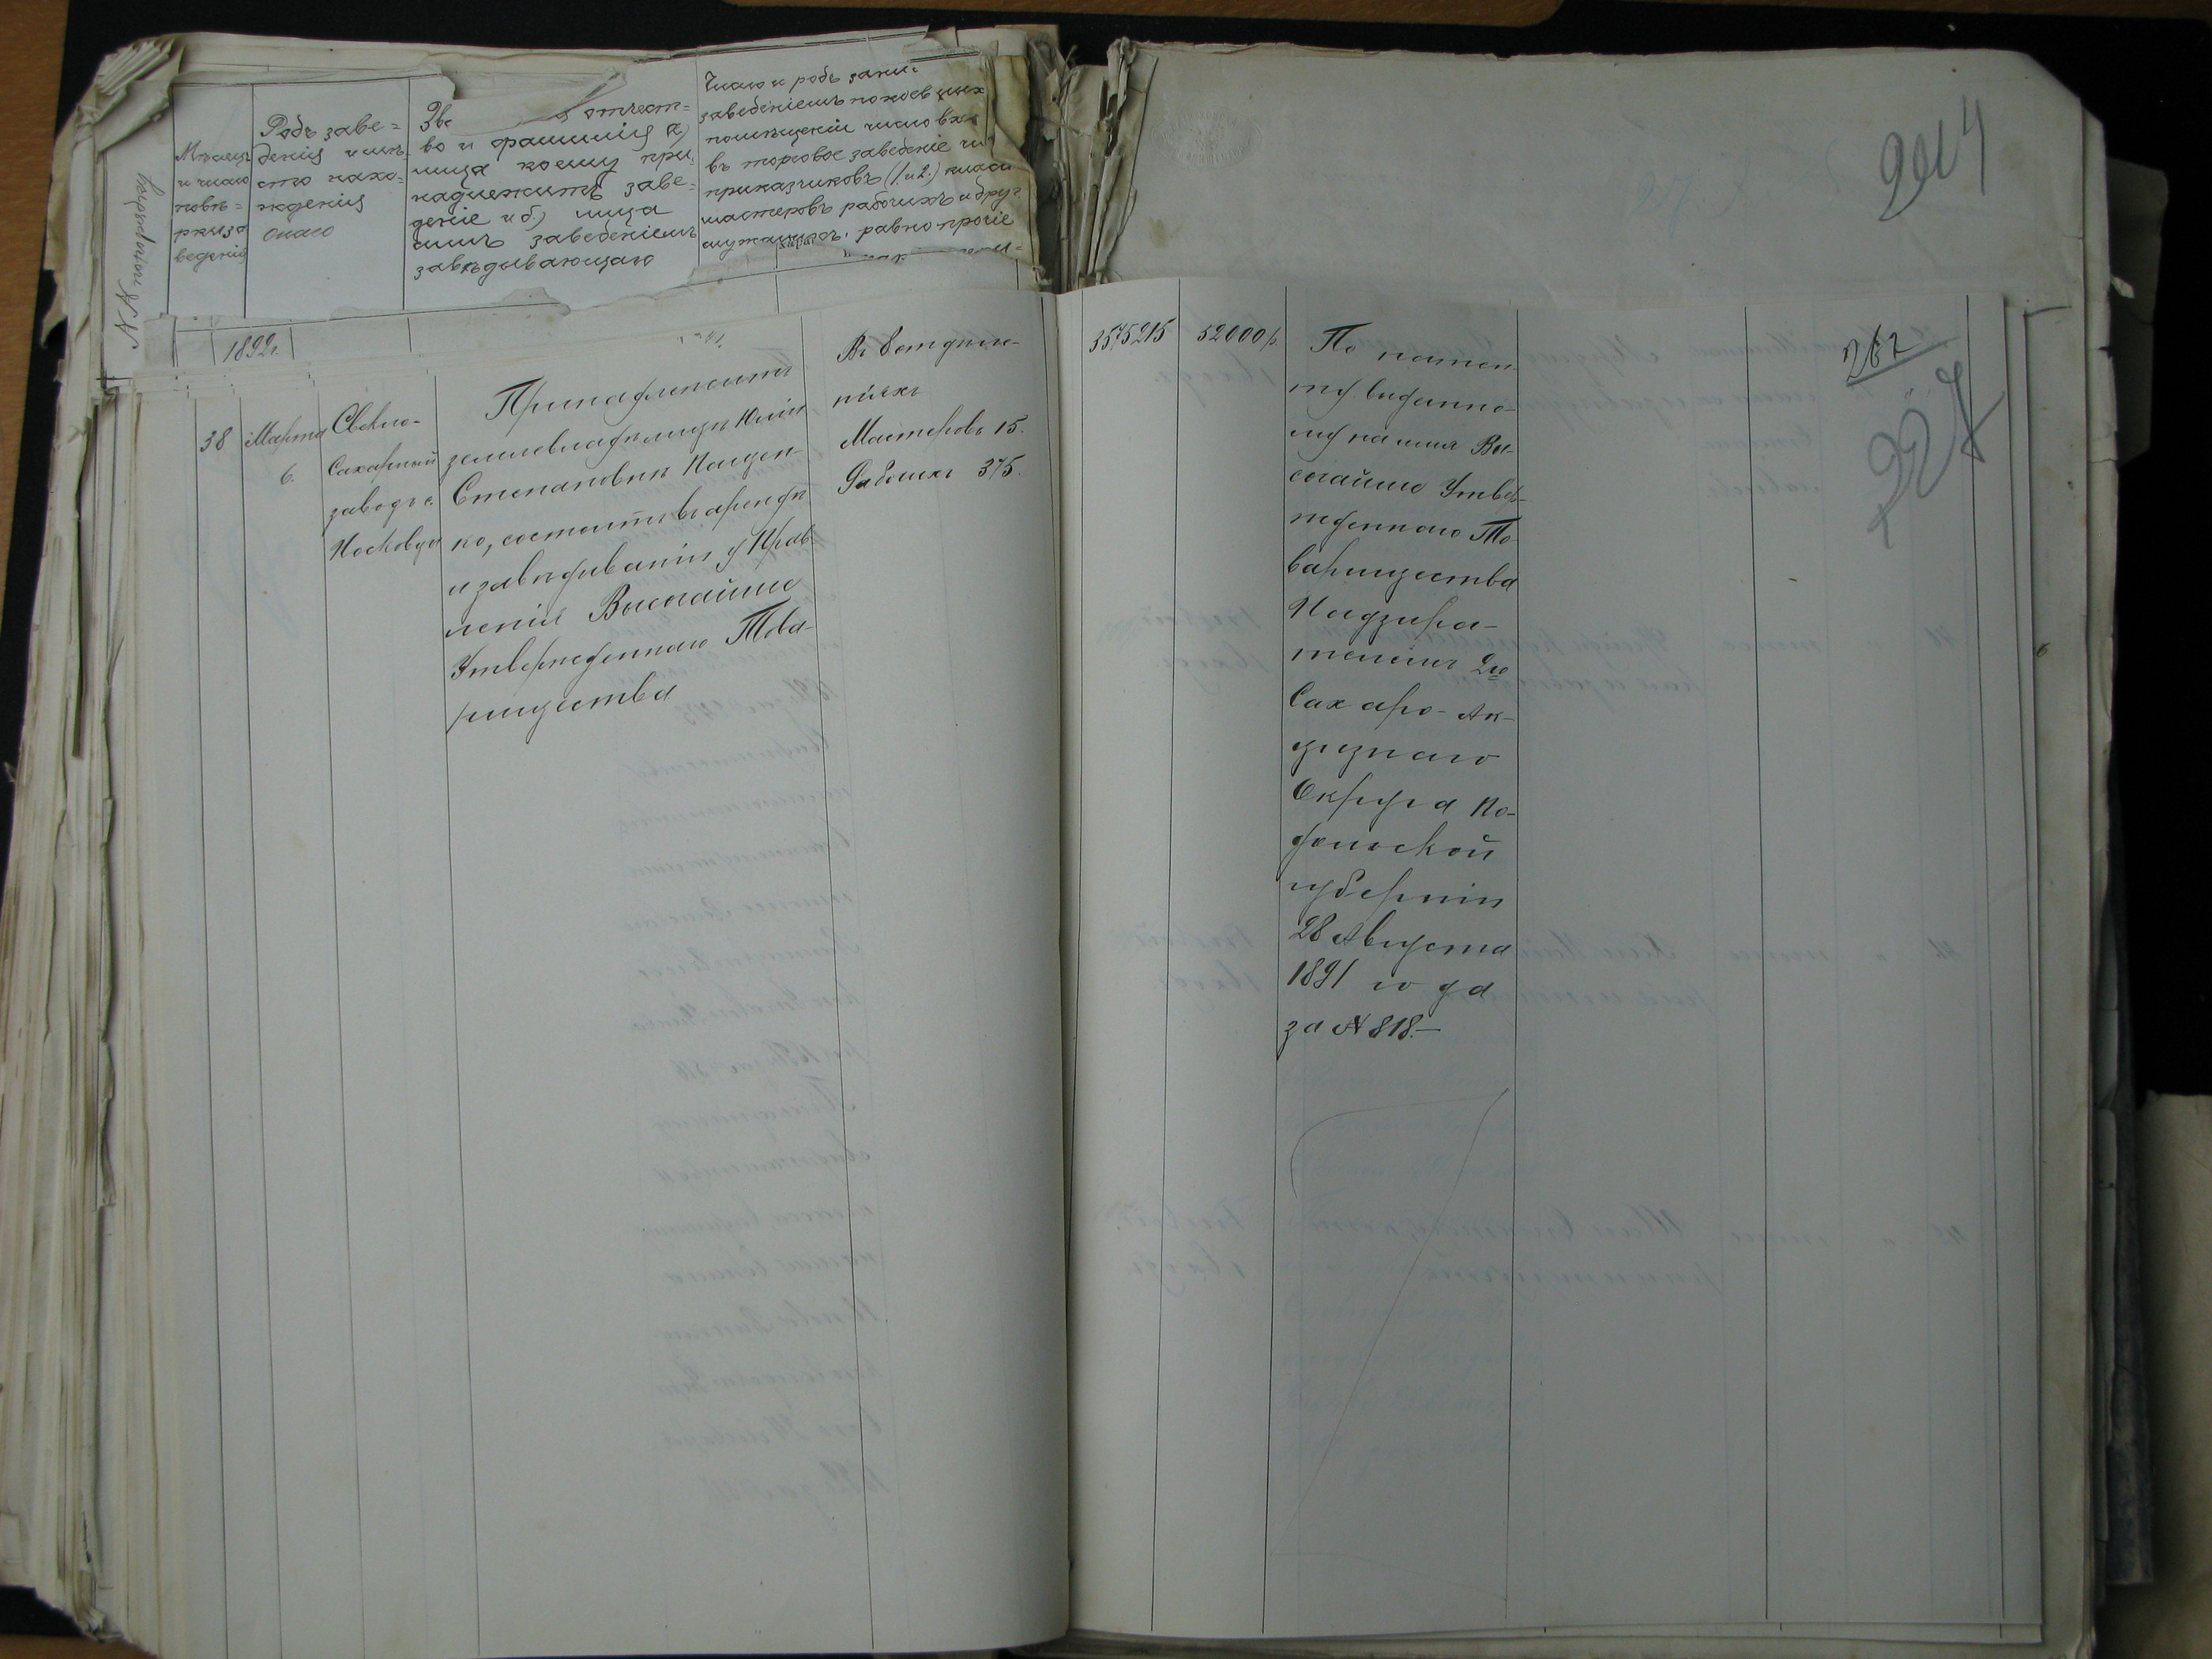 №№ попорядку
Мѣсяцъ
и число
повѣ=
рки за
веденія
Родъ заве=
денія и мѣ-
сто нахо=
жденія
онаго
Зва отчест=
во и фамилія а)
лица коему при-
надлежитъ заве=
деніе и б) лица
симъ заведеніемъ
завѣдывающаго
Число и родъ зани
заведеніемъ покоев
помѣщеній число
въ торговое заведеніе
приказчиковъ (1 и 2) класс
мастеровъ рабочихъ и друг
служащихъ, равно прочіе
1892г.
38
Марта
6.
Свекло-
Сахарный
заводъ с.
Носковцы
Принадлежитъ
землевладѣлицѣ Юліи
Степановнѣ Пащен
ко, состоитъ въ арендѣ
и завѣдываніи у Прав
ленія Высочайше
Утвержденнаго Това-
рищества
Въ 6 отдѣле-
ніяхъ
Мастеровъ 15.
Рабочихъ 375.
3575215
52000 р.
По патен
ту выданно-
му на имя Вы-
сочайше Утвер-
жденнаго То-
варищества
Надзира-
телемъ 2го
Сахаро-Ак-
цизнаго
Округа По-
дольской
губерніи
28 Августа
1891 года
за № 818.—
267
227